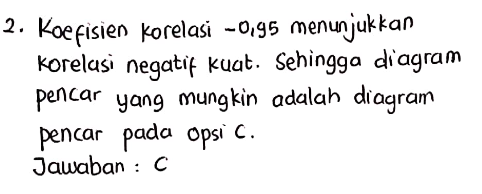 2. Koefisien korelasi -0,95 menunjukkan
korelasi negatif kuat. Sehingga diagram
pencar yang mungkin adalah diagram
pencar pada opsi C.
Jawaban : C